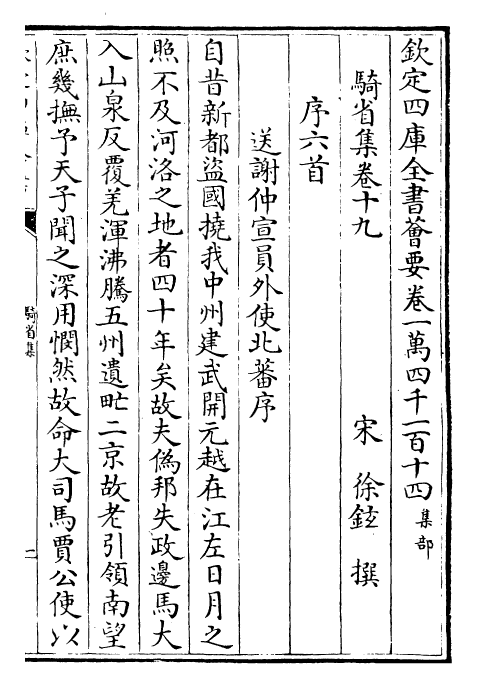 欽定四庫全書薈要卷一萬四千一百十四集部
騎省集卷十九　宋　徐鉉　撰
序六首
送謝仲宣員外使北蕃序
自昔新都盜國撓我中州建武開元越在江左日月之
照不及河洛之地者四十年矣故夫僞邦失政邊馬大
入山泉反覆羌渾沸騰五州遺甿二京故老引領南望
庶幾撫予天子聞之深用憫然故命大司馬賈公使以
騎省集